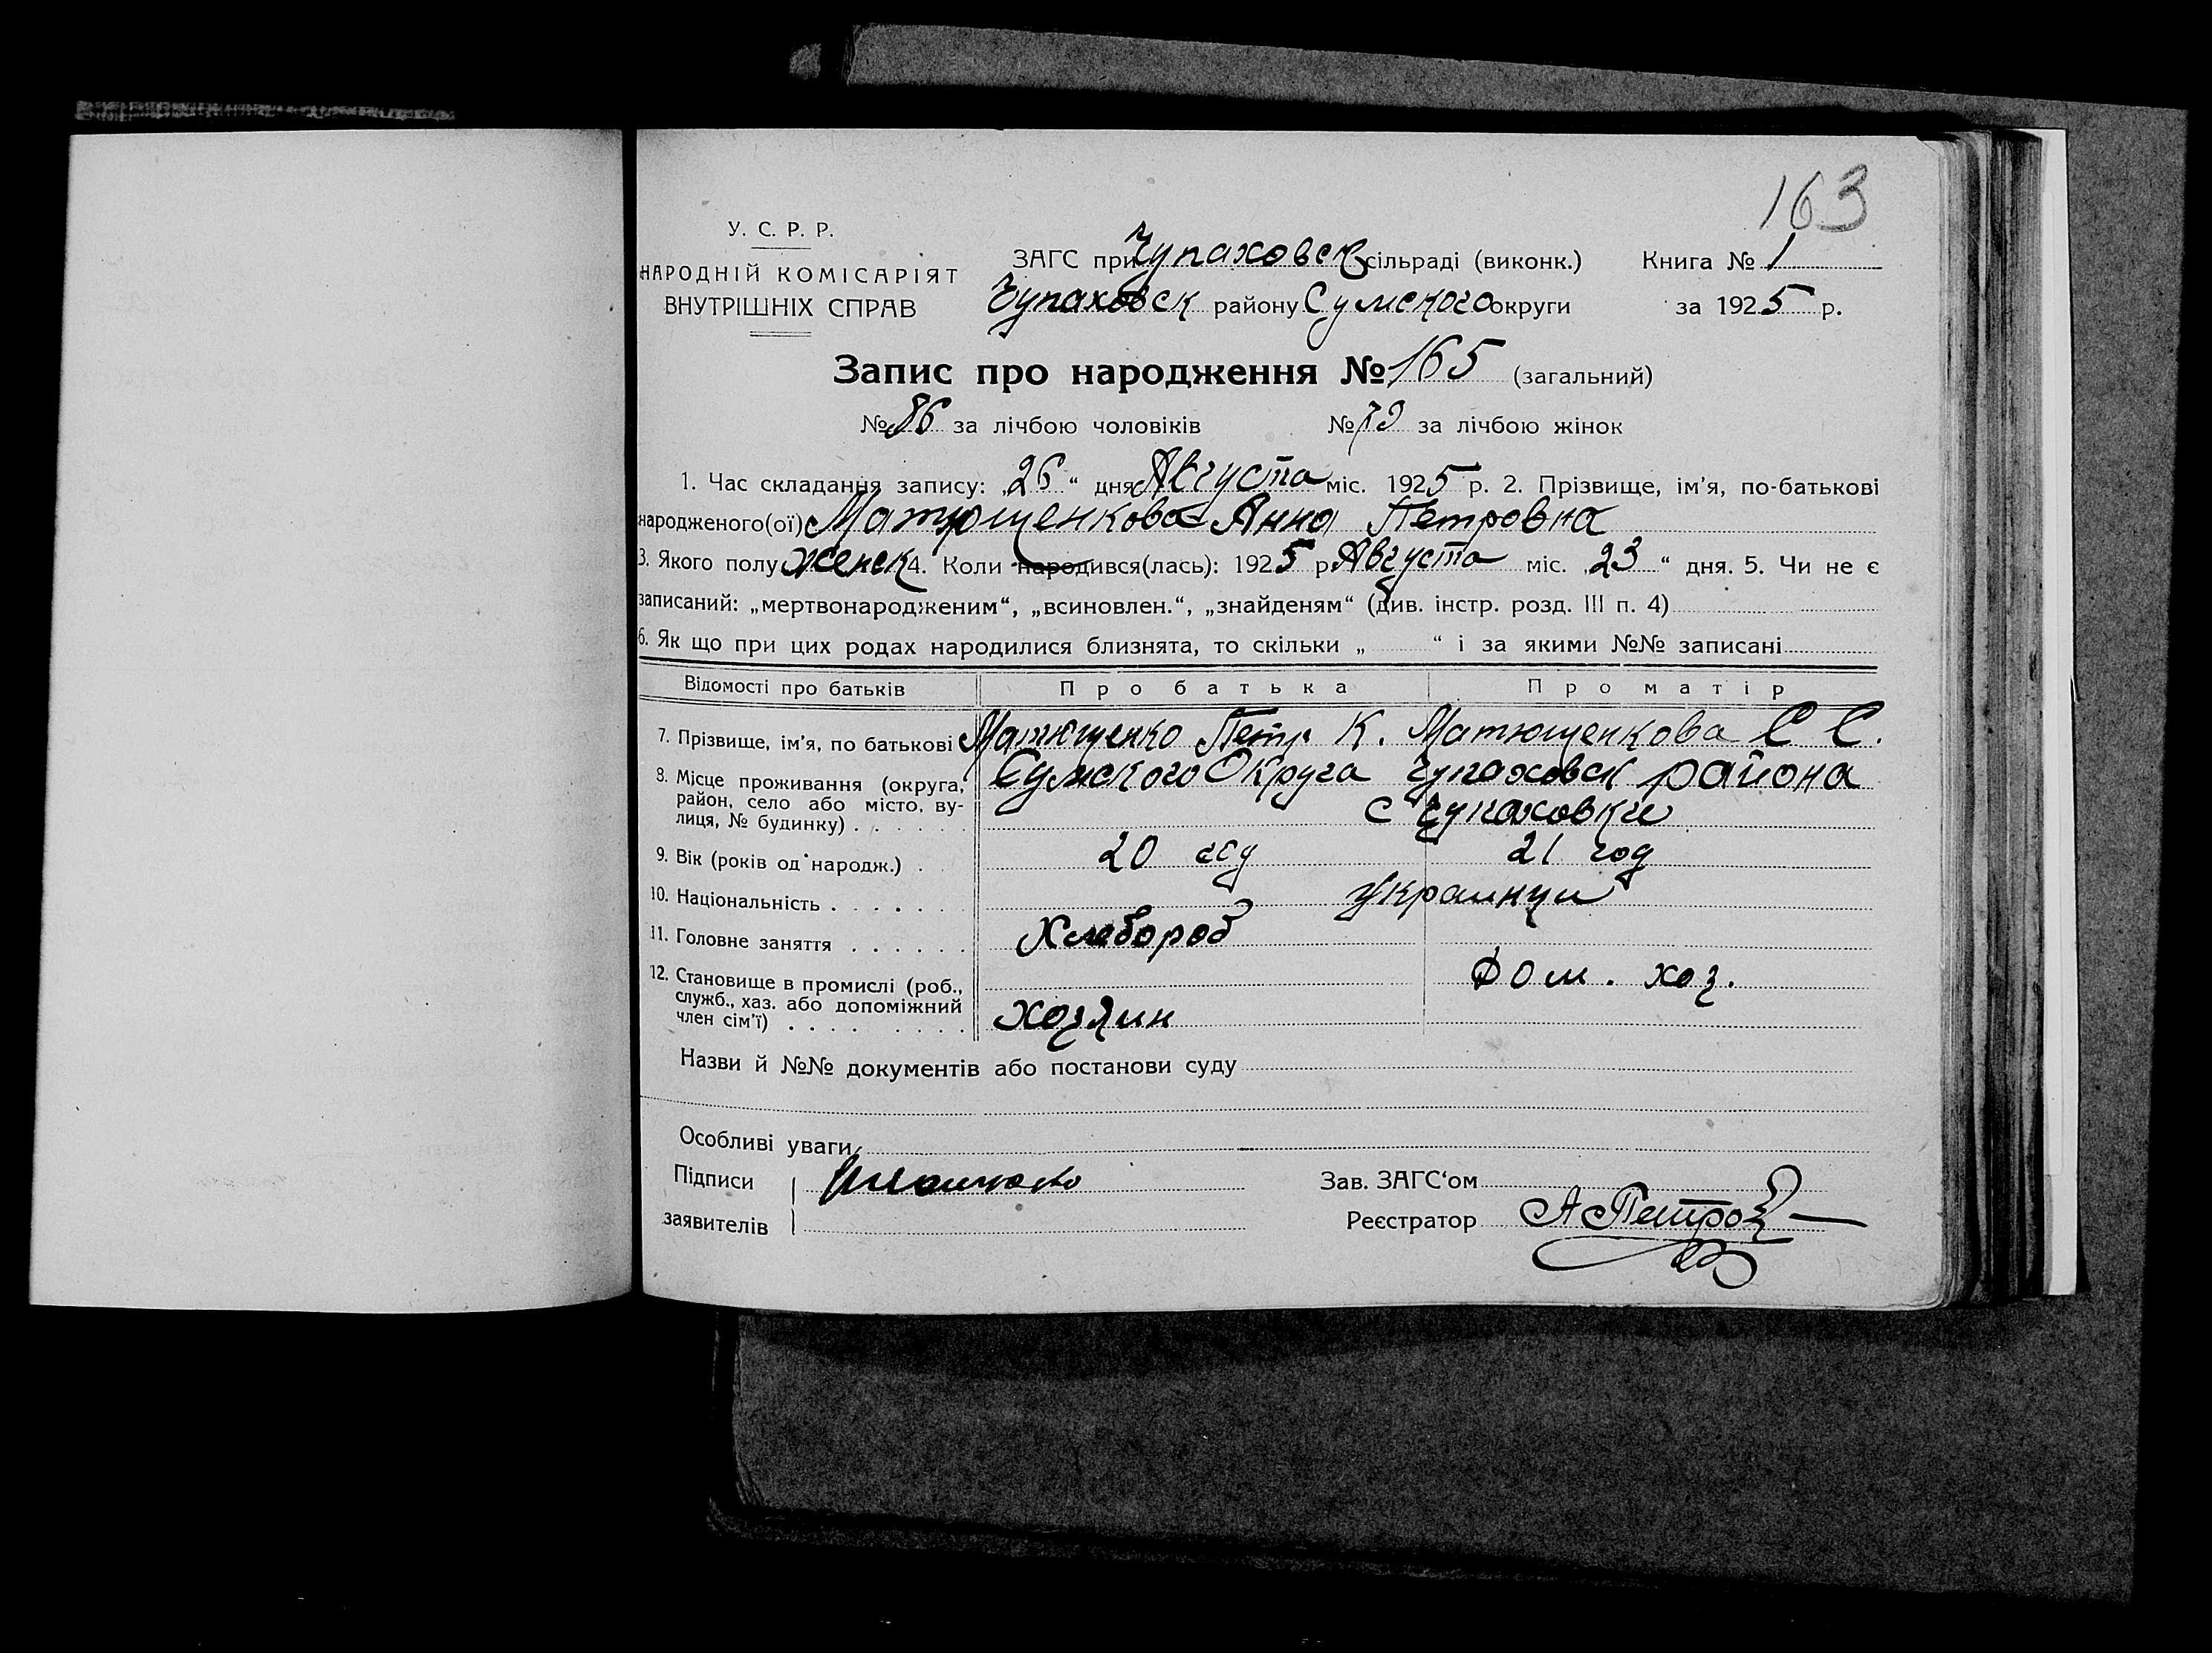 163
У. С. Р. Р.
НАРОДНІЙ КОМІСАРІЯТ
ВНУТРІШНІХ СПРАВ
ЗАГС при Чупаховск сільраді (виконк.) Книга № 1
Чупаховск району Сумского округи за 1925 р.
Запис про народження № 165 (загальний)
№ 86 за лічбою чоловіків № 79 за лічбою жінок
1. Час складання запису: „26“ дня Августа міс. 1925 р. 2. Прізвище, ім’я, по-батькові
народженого(ої) Матющенкова Анна Петровна
3. Якого полу женск 4. Коли народився(лась): 1925 р Августа міс. „23“ дня. 5. Чи не є
записаний: „мертвонародженим“, „всиновлен.“, „знайденям“ (див. інстр. розд. III п. 4)
6. Як що при цих родах народилися близнята, то скільки „ “ і за якими №№ записані
Відомості про батьків Про батька Про матір
7. Прізвище, ім’я, по батькові Матющенко Петр К. Матющенкова С С.
8. Місце проживання (округа, Сумского Округа Чупаховск района
район, село або місто, ву-
лиця, № будинку) . . . . . . с Чупаховки
9. Вік (років од народж.) . 20 год 21 год
10. Національність . . . . . . Украинци
11. Головне заняття . . . . . . Хлебороб
12. Становище в промислі (роб., Дом. хоз.
служб., хаз. або допоміжний
член сім’ї) . . . . . . . . Хозяин
Назви й №№ документів або постанови суду
Особливі уваги
Підписи Зав. ЗАГС‘ом
заявителів Реєстратор А Петров